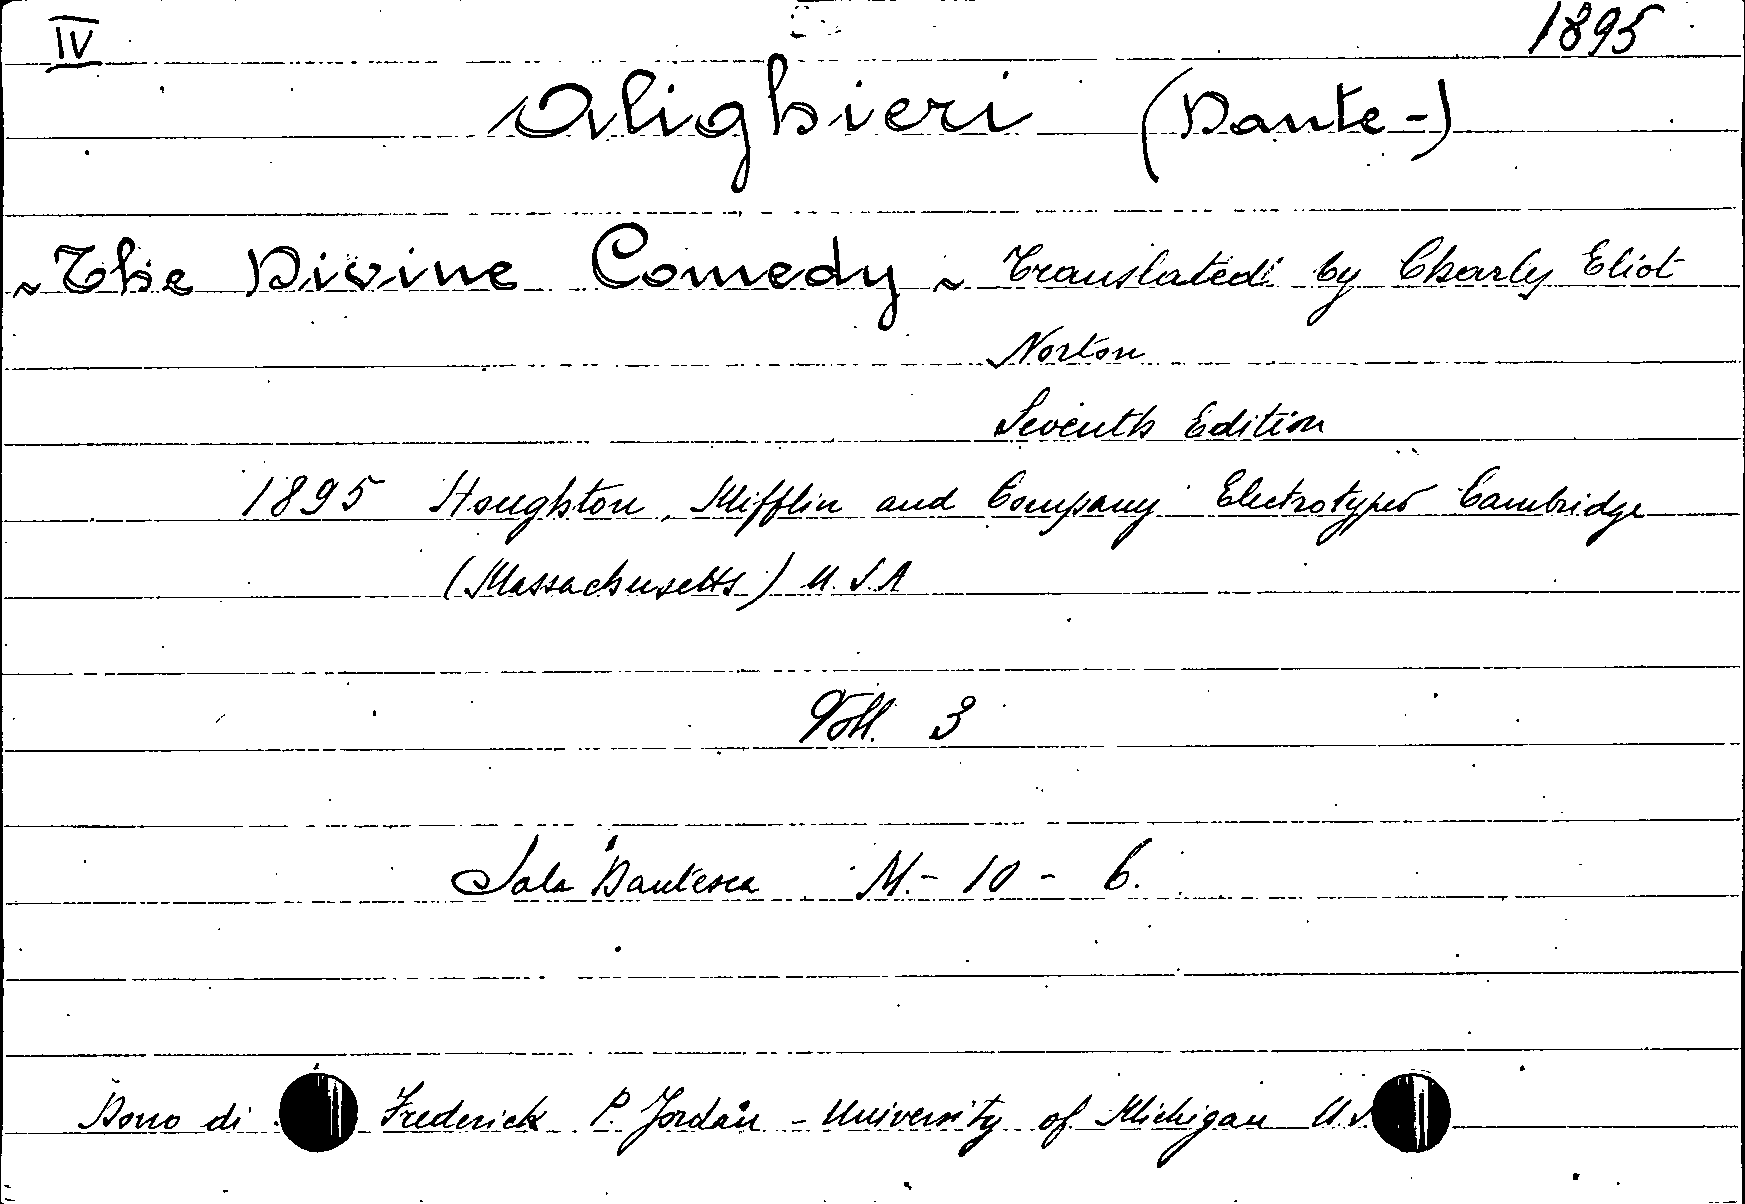 IV 1895
Alighieri (Dante-)
~ The Divine Comedy ~ Translated by Charly Eliot
Norton
Seventh Edition
1895 Houghton, Mifflin and Company Electrotyped Cambridge
(Massachusetts) U.S.A
Voll. 3
Sala Dantesca M.- 10 - 6.
Dono di Frederick P. Jordan - University of Michigan U.S.